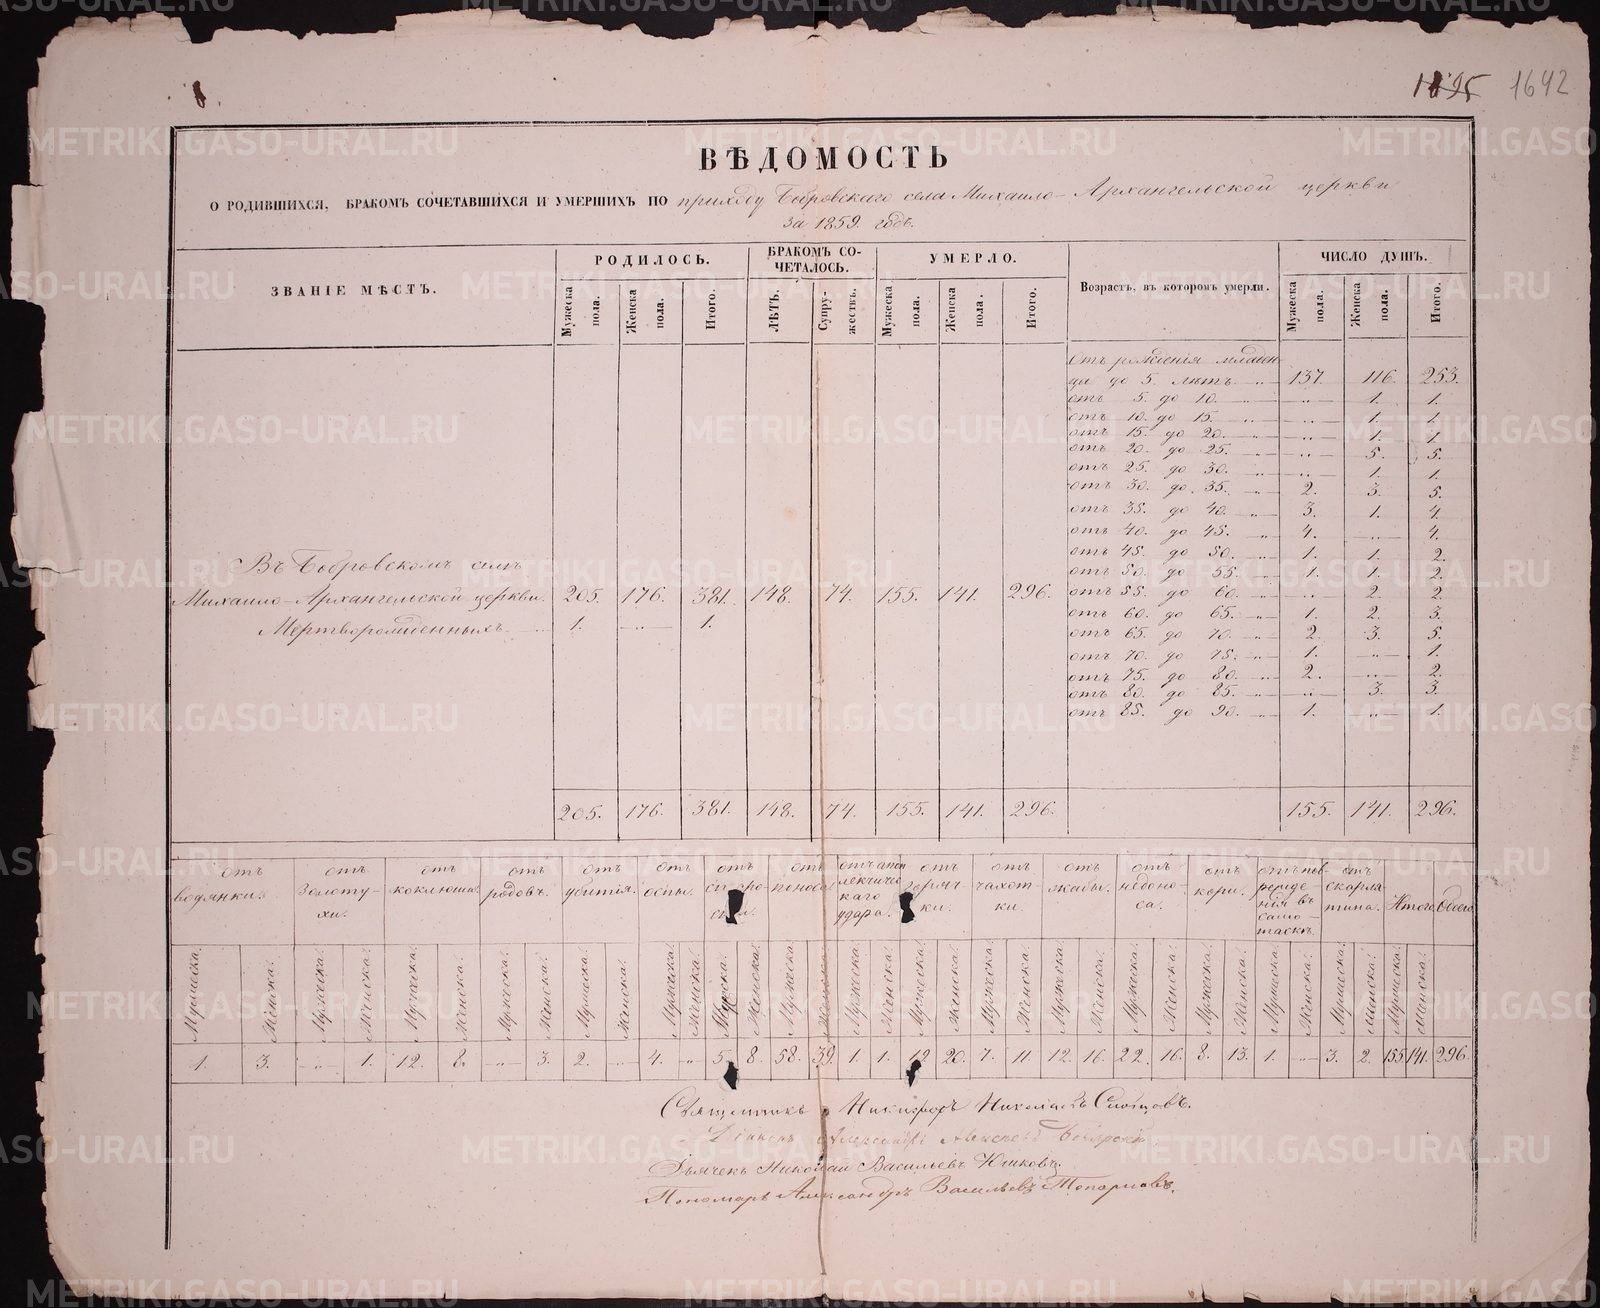 1895 1642
ВѢДОМОСТЬ
О РОДИВШИХСЯ, БРАКОМЪ СОЧЕТАВШИХСЯ И УМЕРШИХЪ ПО приходу Бобровскаго села Михаило-Архангельской церкви
за 1859. годъ.
ЗВАНІЕ МѢСТЪ. РОДИЛОСЬ. БРАКОМЪ СО-ЧЕТАЛОСЬ. УМЕРЛО. Возрастъ, въ которомъ умерли. ЧИСЛО ДУШЪ.
Мужеска пола. Женска пола. Итого. ЛѢТЪ. Супру-жествъ. Мужеска пола. Женска пола. Итого. Мужеска пола. Женска пола. Итого.
Отъ рожденія младен-
ца до 5. лѣтъ „ 137. 116. 253.
отъ 5. до 10. „ „ 1. 1.
отъ 10. до 15. „ „ 1. 1.
отъ 15. до 20. „ „ 1. 1.
отъ 20. до 25. „ „ 5. 5.
отъ 25. до 30. „ „ 1. 1.
отъ 30. до 35. „ 2. 3. 5.
отъ 35. до 40. „ 3. 1. 4.
отъ 40. до 45. „ 4. „ 4.
отъ 45. до 50. „ 1. 1. 2.
отъ 50. до 55. „ 1. 1. 2.
отъ 55. до 60. „ „ 2. 2.
отъ 60. до 65. „ 1. 2. 3.
отъ 65. до 70. „ 2. 3. 5.
отъ 70. до 75. „ 1. „ 1.
отъ 75. до 80. „ 2. „ 2.
отъ 80. до 85. „ „ 3. 3.
отъ 85. до 90. „ 1. „ 1.
Въ Бобровскомъ селѣ
Михаило-Архангельской церкви. 205. 176. 381. 148. 74. 155. 141. 296.
Мертворожденныхъ 1. „ 1.
205. 176. 381. 148. 74. 155. 141. 296. 155. 141. 296.
отъ водянки. отъ Золоту-хи. отъ коклюша. отъ родовъ. отъ убитія. отъ оспы. отъ отъ поноса. отъ апоплекчическаго удара. отъ горяч-ки. отъ чахот-ки. отъ жабы. отъ недоно-са. отъ кори. отъ скарла-тина. Итого Всего
Мужеска. Женска. Мужеска. Женска. Мужеска. Женска. Мужеска. Женска. Мужеска. Женска. Мужеска. Женска. Мужеска. Женска. Мужеска. Женска. Мужеска. Женска. Мужеска. Женска. Мужеска. Женска. Мужеска. Женска. Мужеска. Женска. Мужеска. Женска. Мужеска. Женска. Мужеска. Женска. Мужеска. Женска.
1. 3. „ 1. 12. 8. „ 3. 2. „ 4. „ 5. 8. 58. 39. 1. 1. 19 20. 7. 11. 12. 16. 22. 16. 8. 13. 1. „ 3. 2. 155 141. 296.
Священникъ Никифоръ Николаевъ Словцовъ.
Діаконъ Александръ Алексѣевъ
Дьячекъ Николай Васильевъ Юшковъ.
Пономарь Александръ Васильевъ Топорковъ.
METRIKI.GASO-URAL.RU